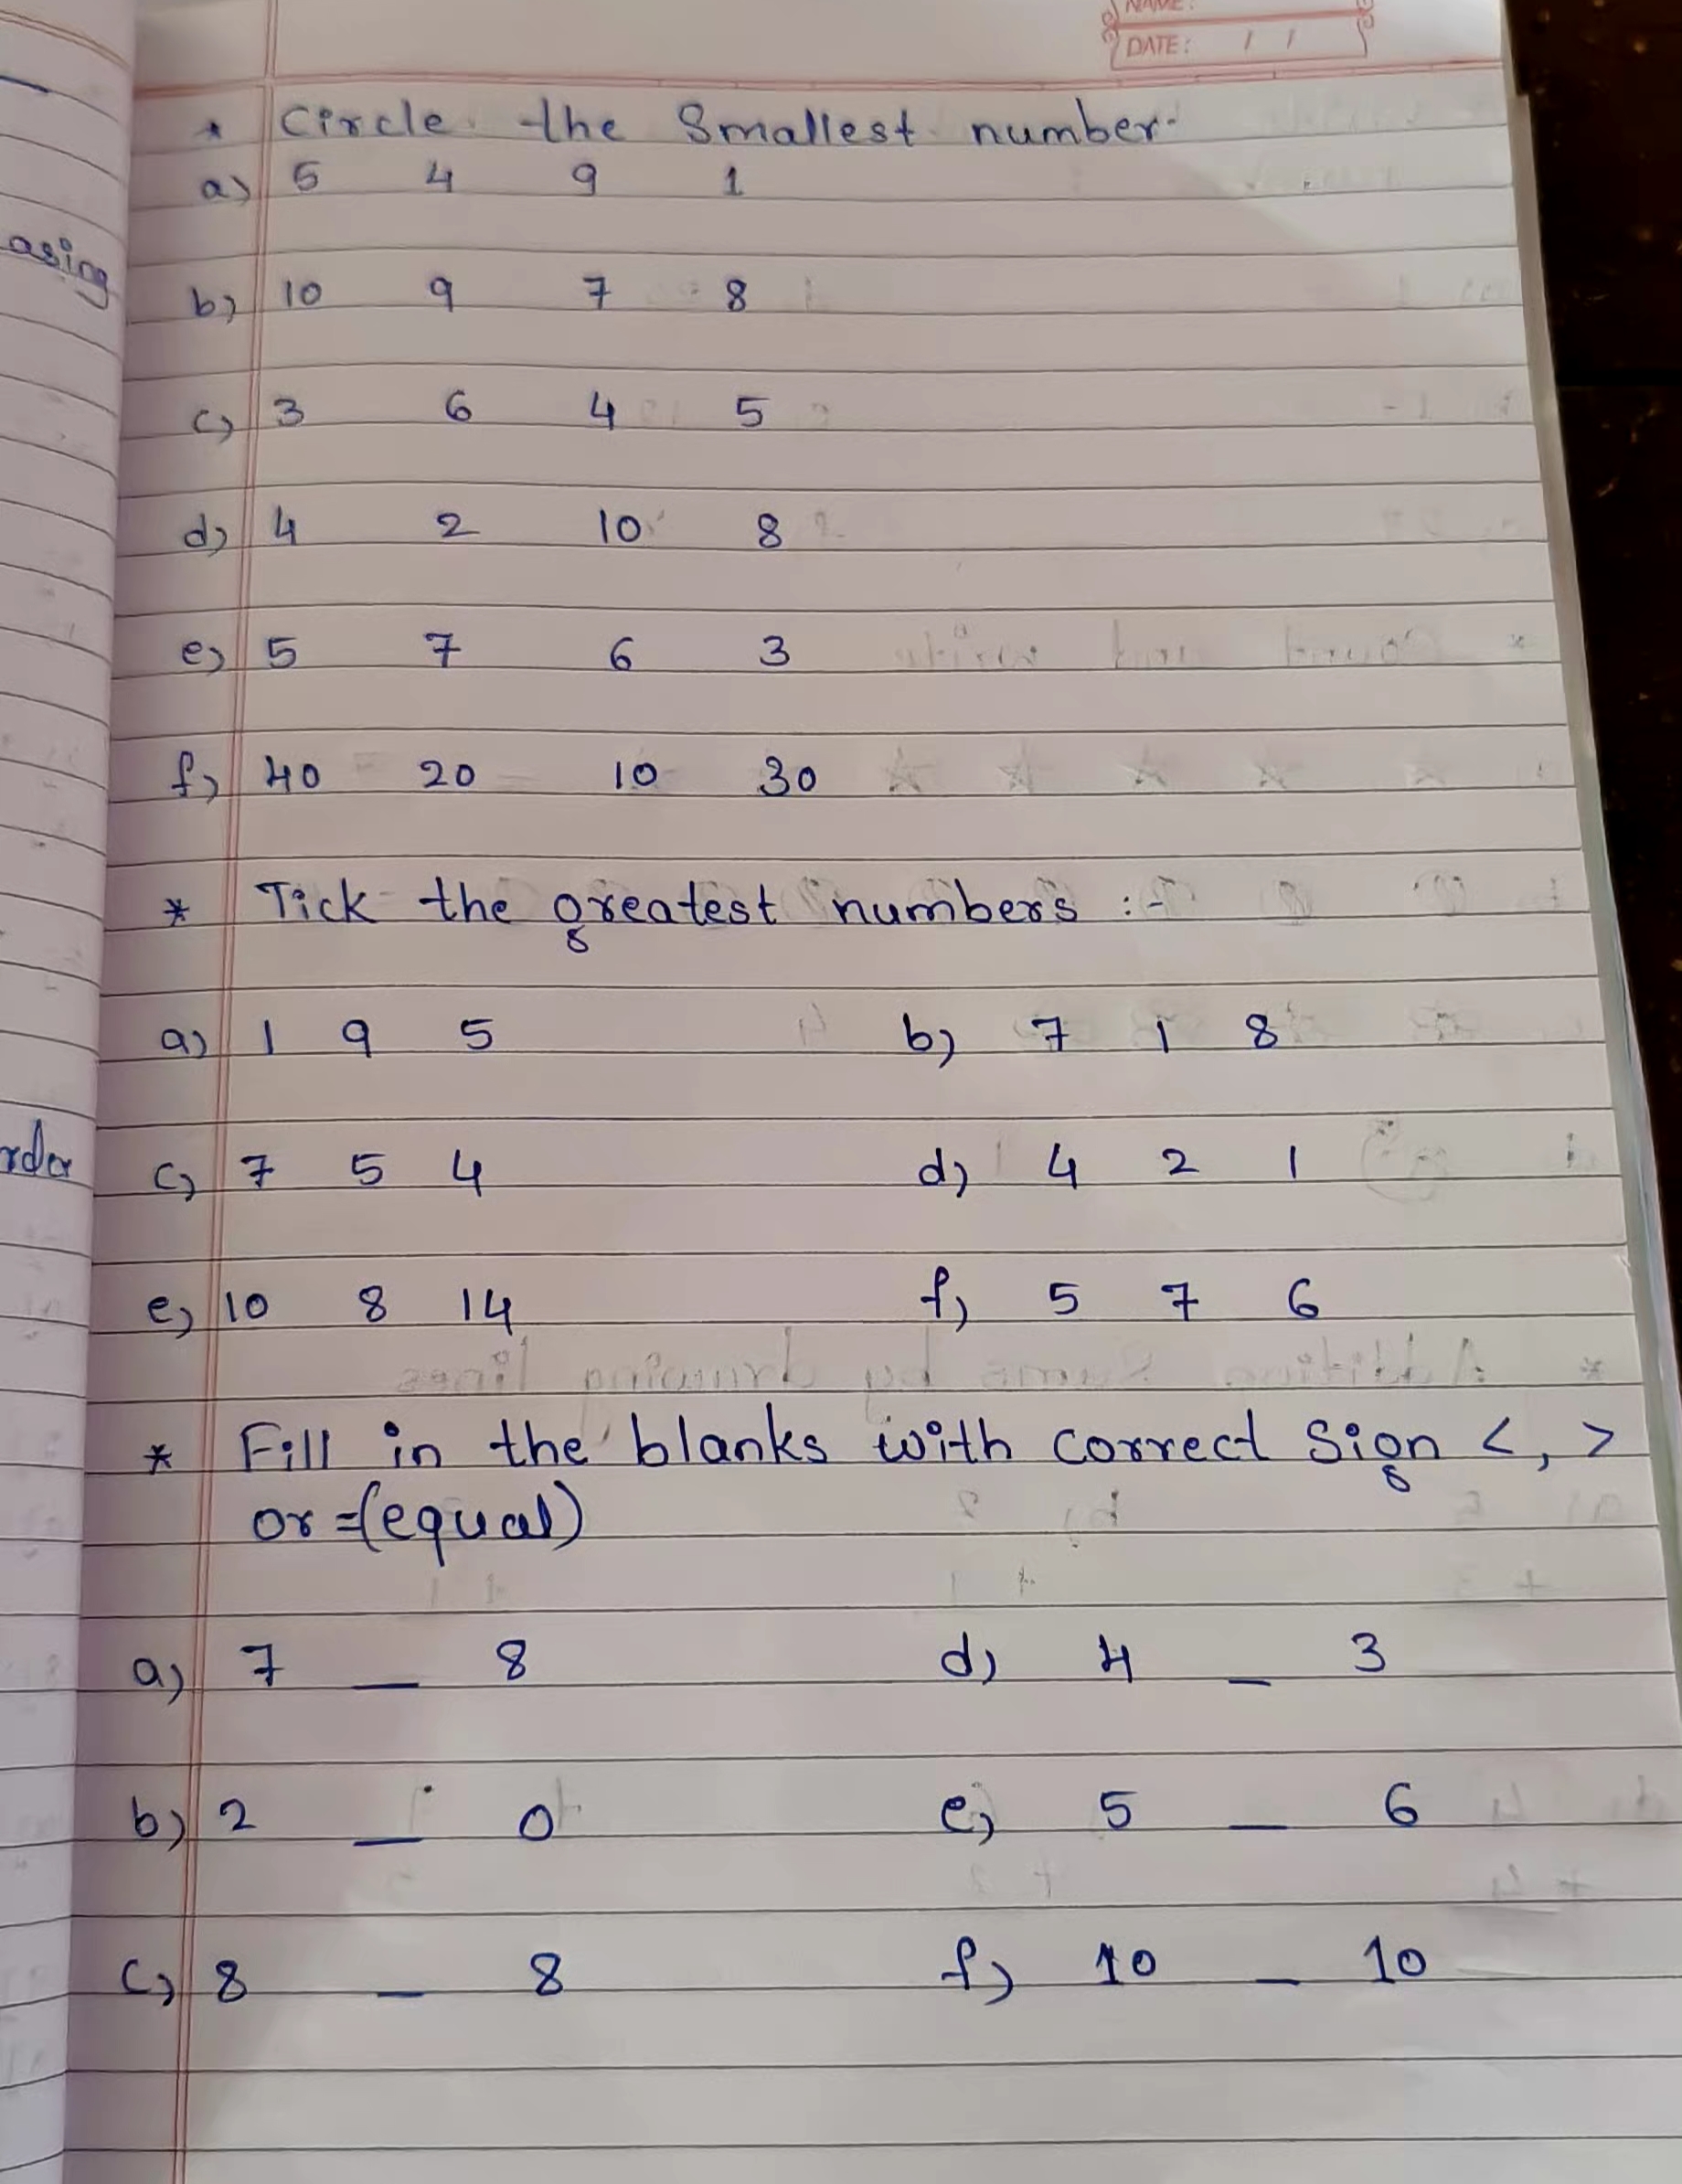 NAME:
DATE: / /
* Circle the Smallest number.
a) 5 4 9 1
asing
b) 10 9 7 8
c) 3 6 4 5
d) 4 2 10 8
e) 5 7 6 3
f) 40 20 10 30
* Tick the greatest numbers :-
a) 1 9 5 b) 7 1 8
rder
c) 7 5 4 d) 4 2 1
e) 10 8 14 f) 5 7 6
* Fill in the blanks with correct Sign <, >
or =(equal)
a) 7 _ 8 d) 4 _ 3
b) 2 _ 0 e) 5 _ 6
c) 8 _ 8 f) 10 _ 10